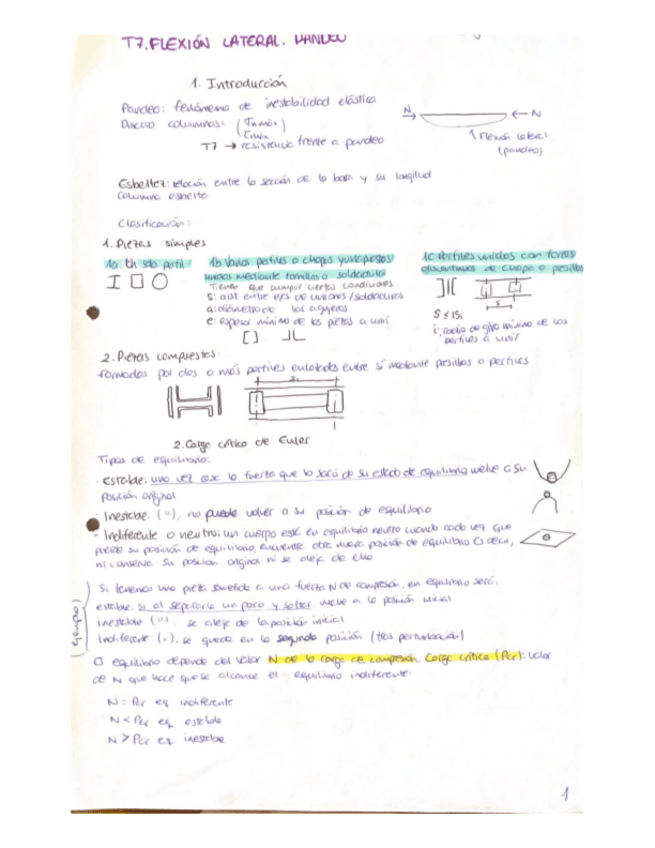 T7. FLEXIÓN LATERAL. PANDEO
1. Introducción
Pandeo: fenómeno de inestabilidad elástica
Diseño columnas: (σmáx)
(τmáx)
T7 → resistencia frente a pandeo
N → ← N
↑ Flexión lateral
(pandeo)
Esbeltez: relación entre la sección de la barra y su longitud
columna esbelta
Clasificación:
1. Piezas simples
1a. Un solo perfil
1b. Varios perfiles o chapas yuxtapuestos
unidas mediante tornillos o soldadura
Tienen que cumplir ciertas condiciones
S: dist entre ejes de uniones/soldaduras
a: diámetro de los agujeros
e: espesor mínimo de las piezas a unir
1c. Perfiles unidos con forros
discontinuos de chapa o presillas
S
S ≤ 15i
i: radio de giro mínimo de los
perfiles a unir
2. Piezas compuestas:
formadas por dos o más perfiles enlazados entre sí mediante presillas o perfiles
2. Carga crítica de Euler
Tipos de equilibrio:
· Estable: una vez cese la fuerza que lo sacó de su estado de equilibrio, vuelve a su
posición original
- Inestable: ("), no puede volver a su posición de equilibrio
- Indiferente o neutro: un cuerpo está en equilibrio neutro cuando cada vez que
pierde su posición de equilibrio, encuentra otra nueva posición de equilibrio. Es decir,
ni conserva su posición original ni se aleja de ella
(ejemplo)
Si tenemos una pieza sometida a una fuerza N de compresión, en equilibrio será:
estable: si al separarla un poco y soltar vuelve a la posición inicial
inestable ("): se aleja de la posición inicial
Indiferente: ("), se queda en la segunda posición (tras perturbación)
El equilibrio depende del valor N de la carga de compresión. Carga crítica (Pcr): valor
de N que hace que se alcance el equilibrio indiferente.
N = Pcr eq. indiferente
N < Pcr eq. estable
N > Pcr eq. inestable
1